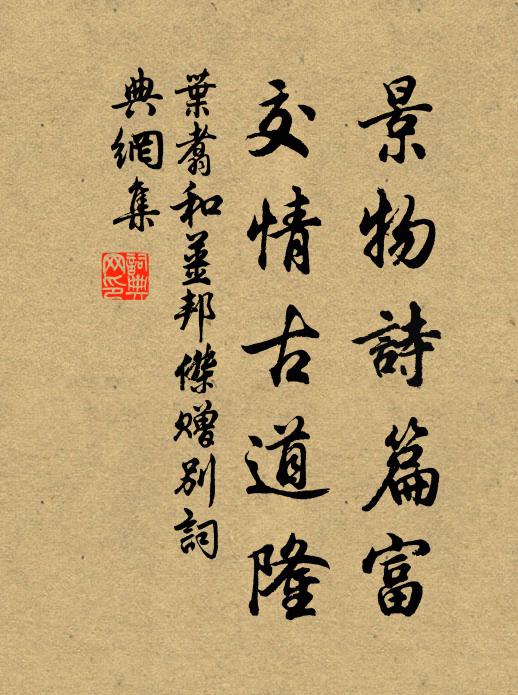 景物詩篇富
交情古道隆
葉翥和姜邦傑贈別詞
典網集
詞典網印